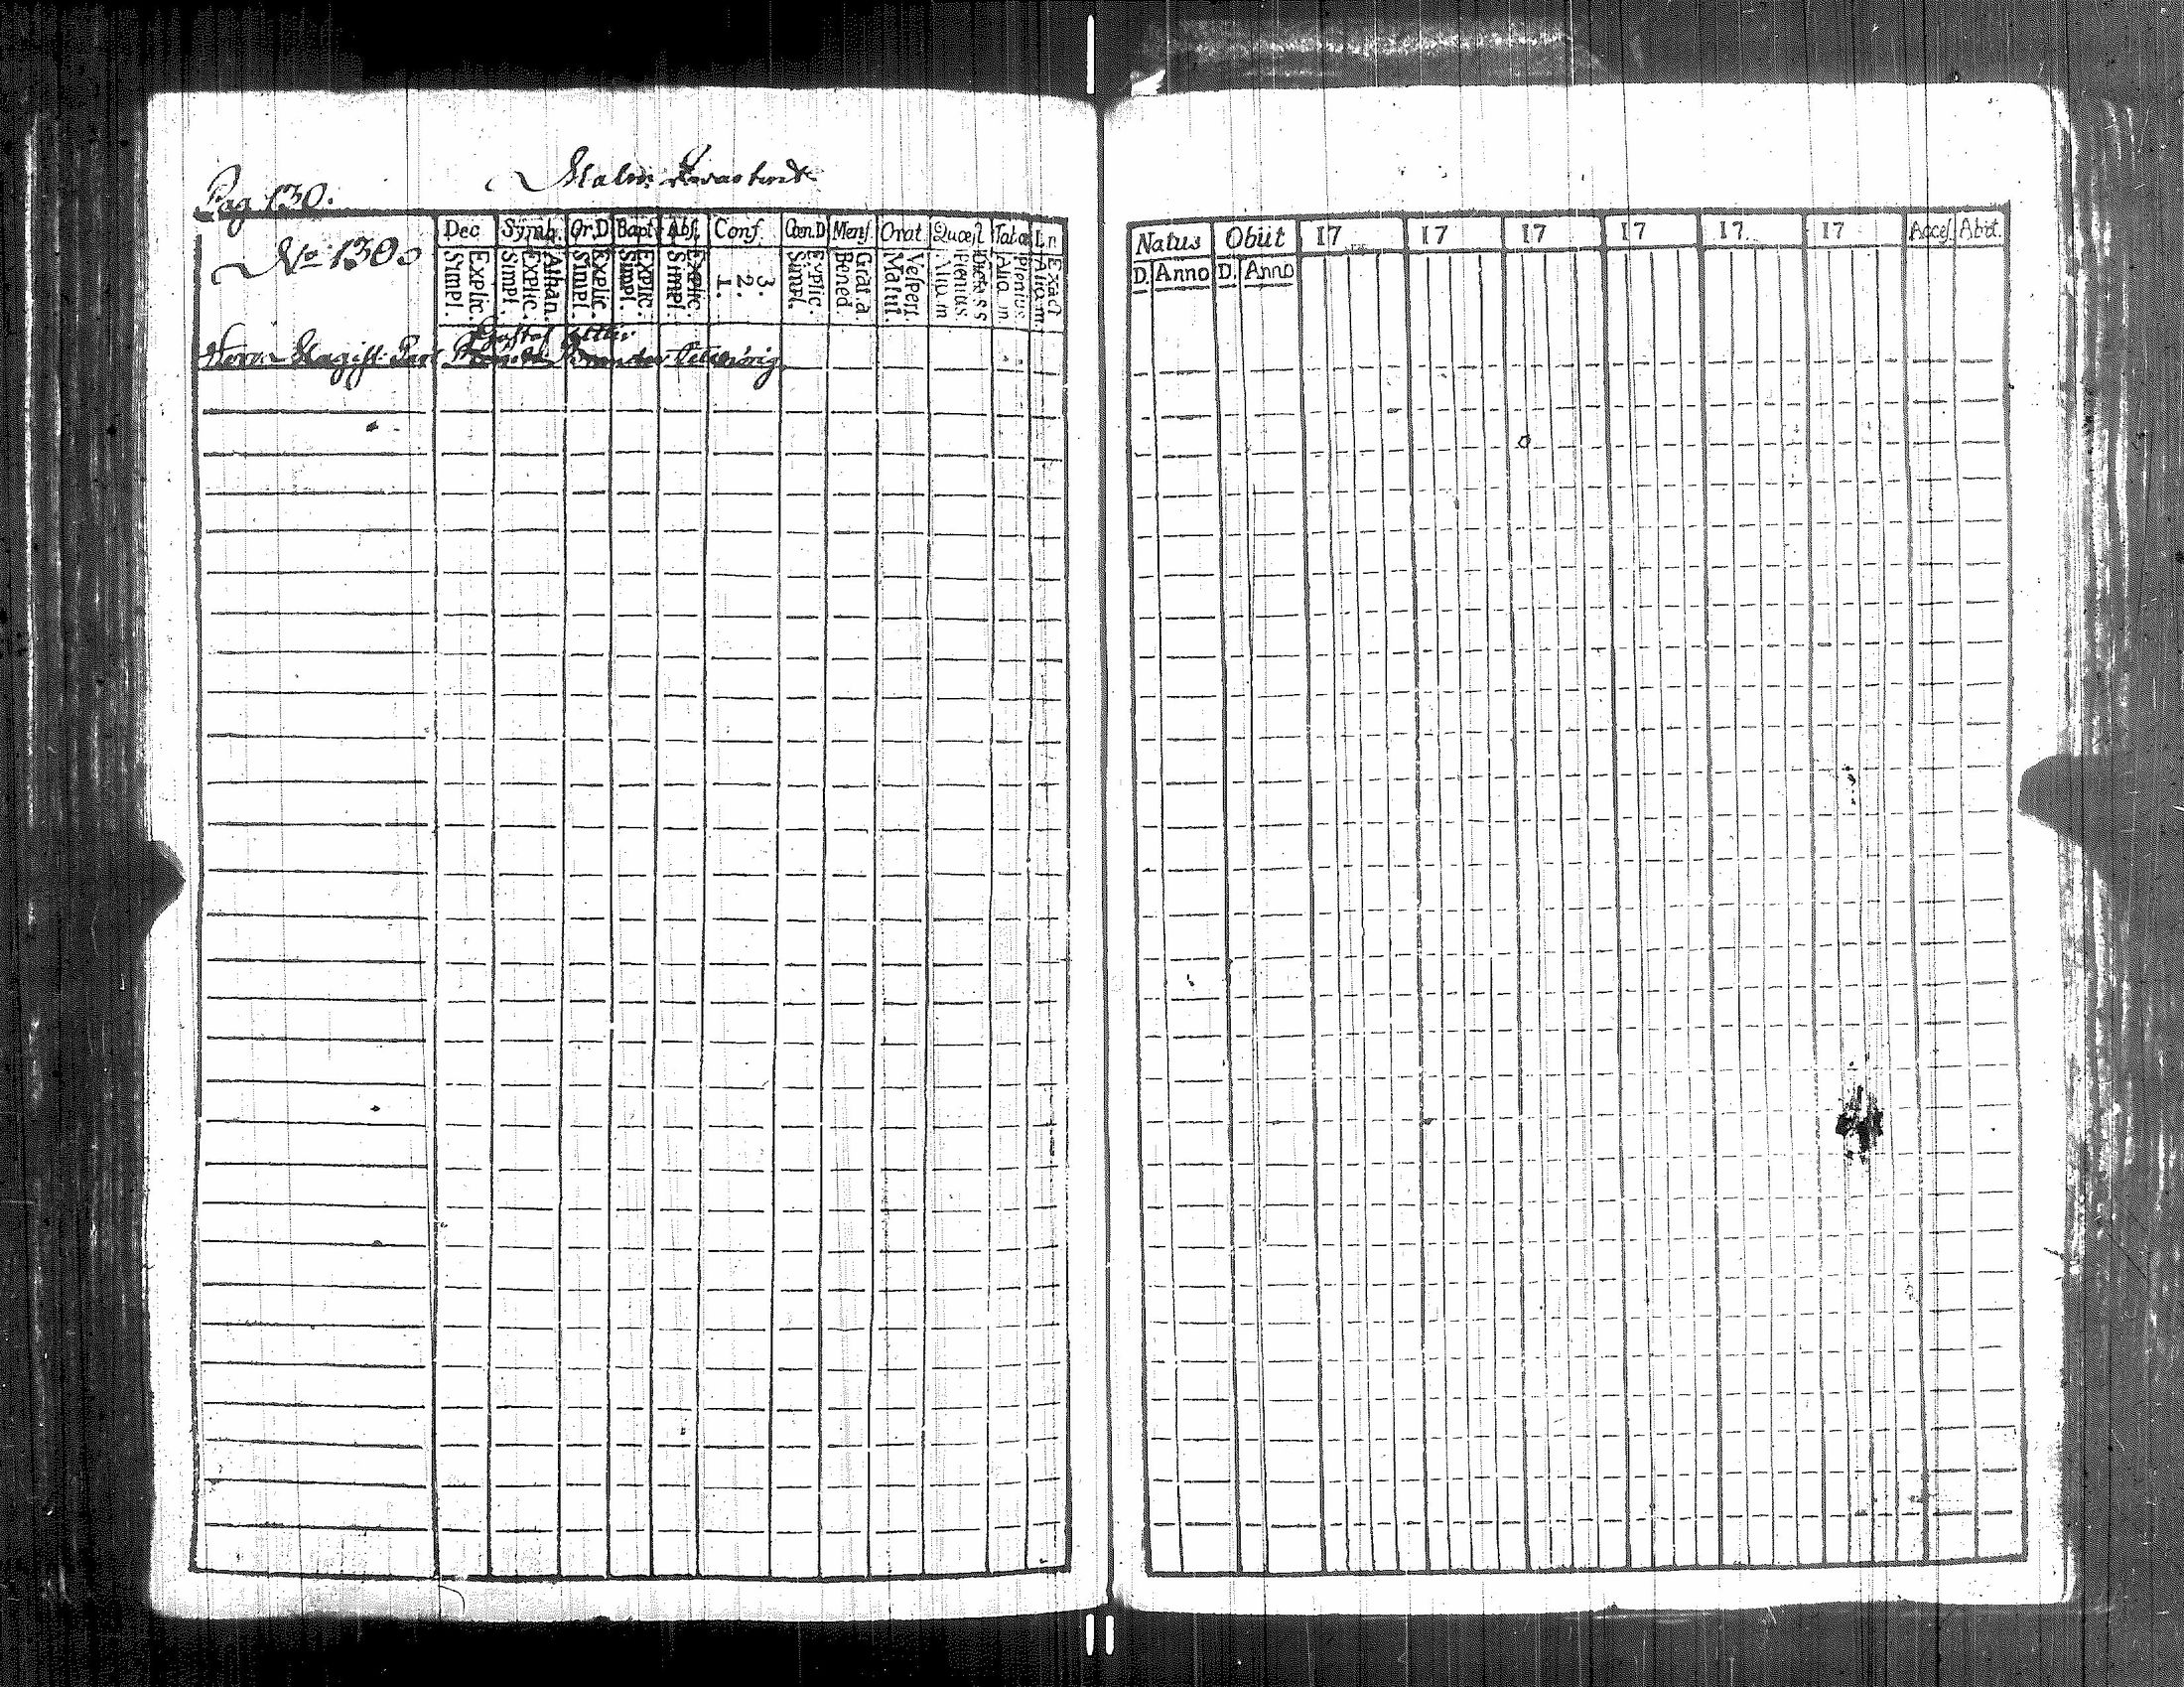 Pag 130.
Malm
No 130
Dec Symb. Or.D Bapt Abs. Conf. Cœn.D Mens. Orat. Quæst Tabæ
Simpl. Explic. Simpl. Explic. Athan. Simpl. Explic. Simpl. Explic. Simpl. Explic. 1. 2. 3. Simpl. Explic. Bened. Grat. a Matut. Vesper. Aliq. m Plenius Aliq. m. Plenius Aliq. m. Exact
Gustaf
Herr Magist. Brander tillhörig
Natus Obiit 17 17 17 17 17. 17 Acces. Abit.
D. Anno D. Anno